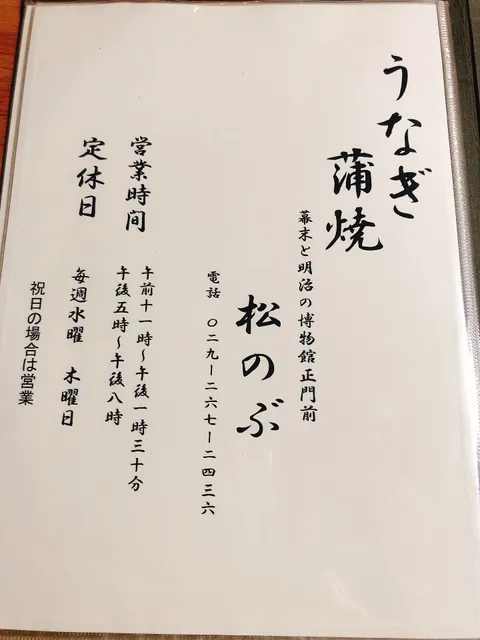 うなぎ
蒲焼
幕末と明治の博物館正門前
松のぶ
電話 〇二九ー二六七ー二四三六
営業時間 午前十一時〜午後一時三十分
午後五時〜午後八時
定休日 毎週水曜 木曜日
祝日の場合は営業